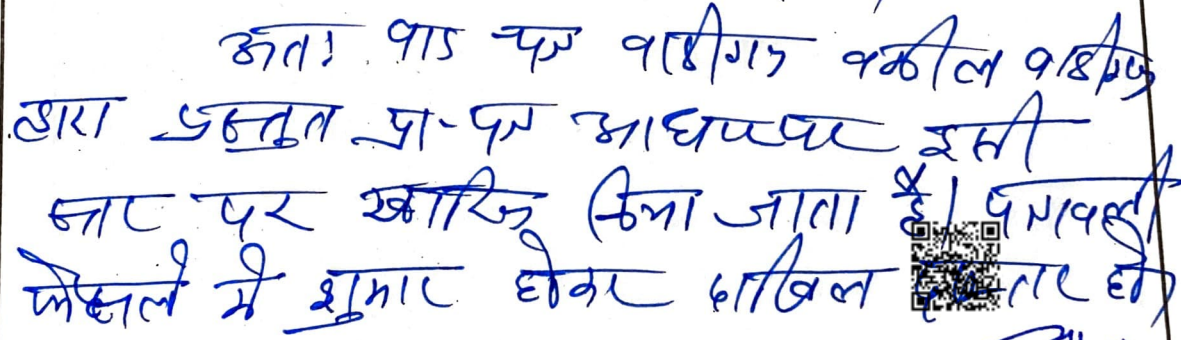 अतः वाद पत्र वादीगण वकील वादीगण
द्वारा प्रस्तुत प्रा-पत्र आधार पर इसी
स्तर पर खारिज किया जाता है। पत्रावली
फैसले में शुमार होकर दाखिल दफ्तर हो।